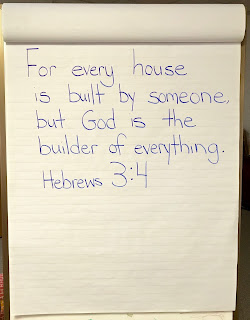 For every house
is built by someone,
but God is the
builder of everything.
Hebrews 3:4